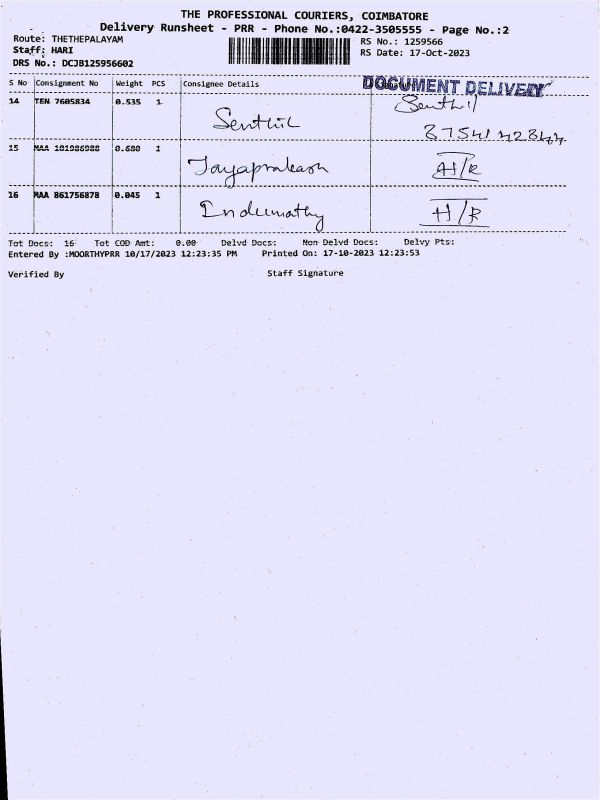 THE PROFESSIONAL COURIERS, COIMBATORE
Delivery Runsheet - PRR - Phone No.:0422-3505555 - Page No.:2
Route: THETHEPALAYAM RS No.: 1259566
Staff: HARI RS Date: 17-Oct-2023
DRS No.: DCJB125956602
S No Consignment No Weight PCS Consignee Details DOCUMENT DELIVERY
14 TEN 7605834 0.535 1 Senthil Senthil
15 MAA 101986988 0.680 1 Jayaprakash
16 MAA 861756878 0.045 1 Indumathy H/R
Tot Docs: 16 Tot COD Amt: 0.00 Delvd Docs: Non Delvd Docs: Delvy Pts:
Entered By :MOORTHYPRR 10/17/2023 12:23:35 PM Printed On: 17-10-2023 12:23:53
Verified By Staff Signature